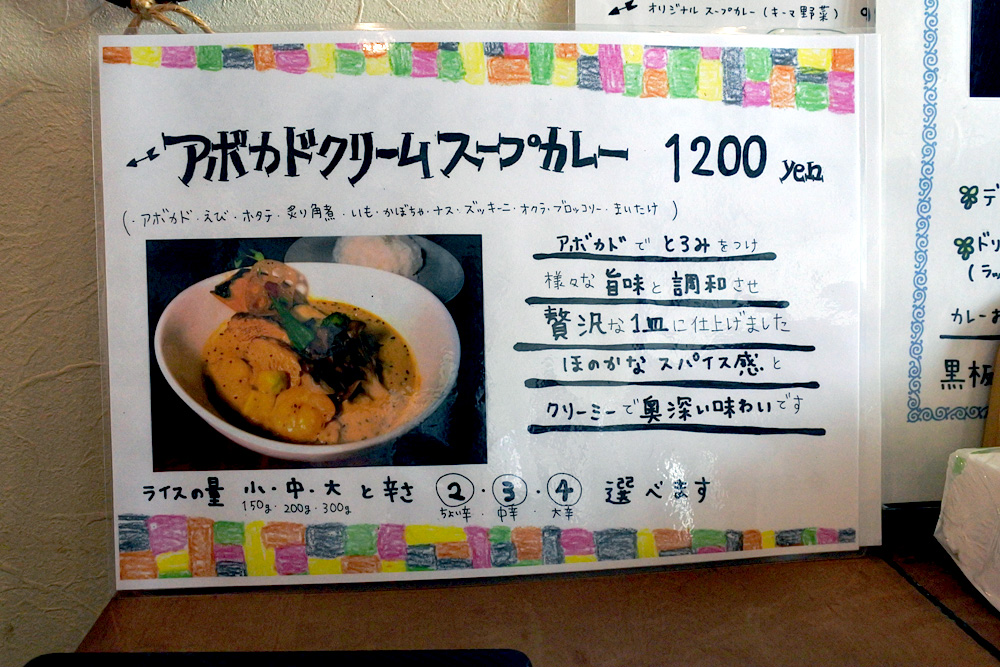 オリジナル スープカレー (キーマ野菜)
アボカドクリームスープカレー 1200 yen
(・アボカド・えび・ホタテ・炙り角煮・いも・かぼちゃ・ナス・ズッキーニ・オクラ・ブロッコリー・まいたけ)
アボカドでとろみをつけ
様々な旨味と調和させ
贅沢な1皿に仕上げました
ほのかなスパイス感と
クリーミーで奥深い味わいです
ライスの量 小・中・大 と辛さ ②・③・④ 選べます
150g・200g・300g ちょい辛・中辛・大辛
デ
ドリ
(ラッ
カレーお
黒板